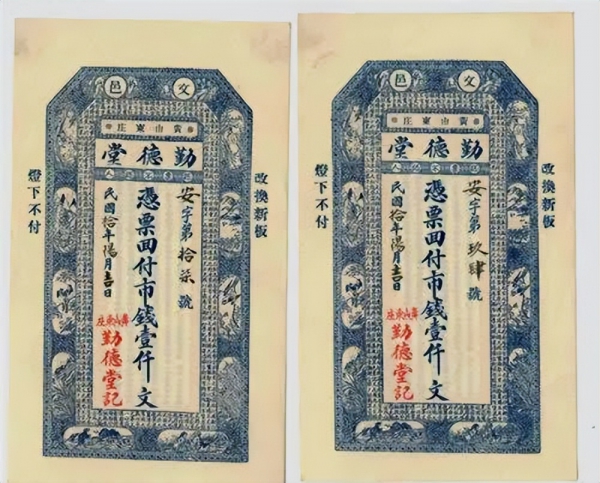 文邑
黄山東庄
勤德堂
認票不認人
安字第拾柒號
憑票回付市錢壹仟文
民國拾年陽月吉日
勤德堂記
改換新板
燈下不付
文邑
黄山東庄
勤德堂
認票不認人
安字第玖肆號
憑票回付市錢壹仟文
民國拾年陽月吉日
勤德堂記
改換新板
燈下不付